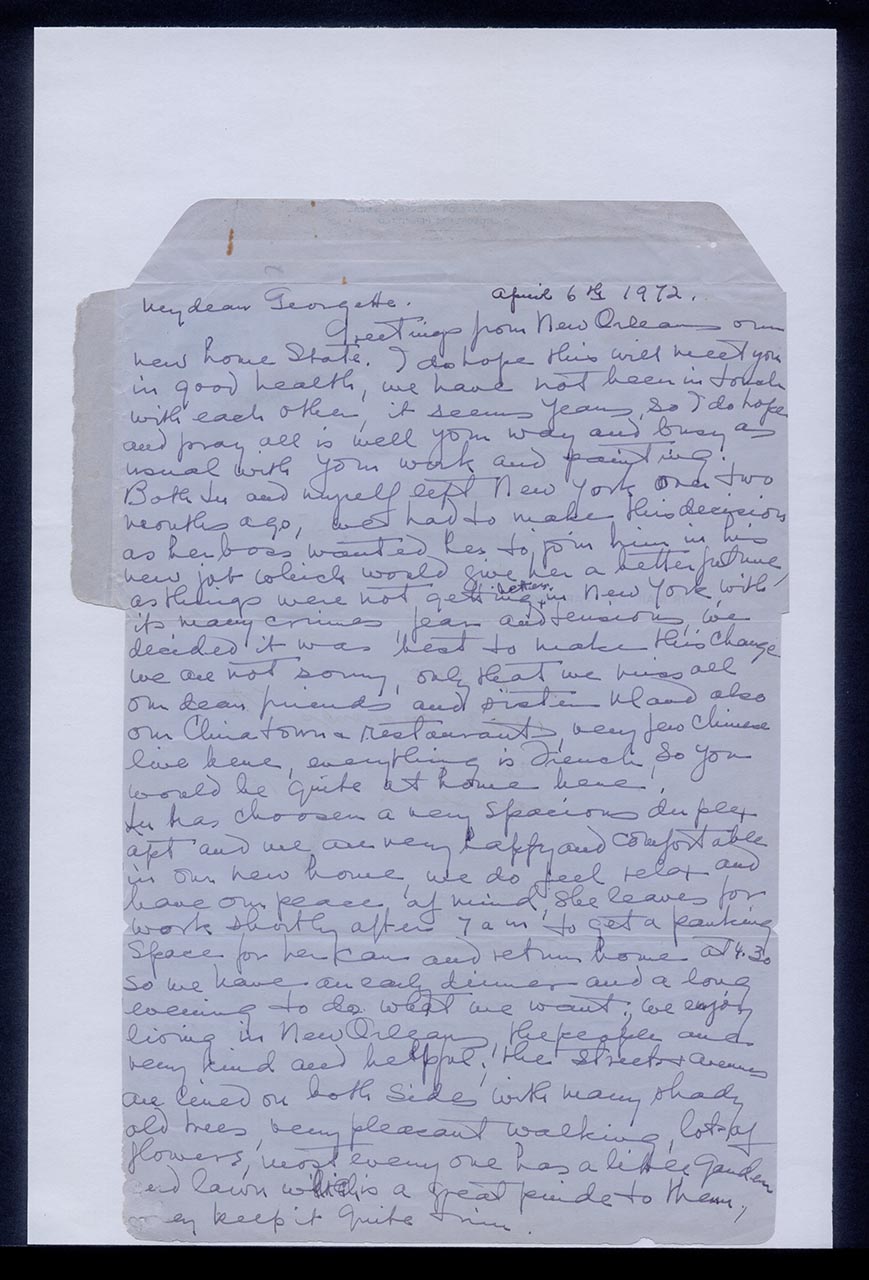 My dear Georgette. April 6th 1972.
Greetings from New Orleans our
new home State. I do hope this will meet you
in good health, we have not been in touch
with each other, it seems years, so I do hope
and pray all is well your way and busy as
usual with your work and painting.
Both and myself left New York over two
months ago, we had to make this decision
as her boss wanted her to join him in his
new job which would give her a better future,
as things were not getting better in New York with
its many crimes fears and tensions, we
decided it was best to make this change
we are not sorry, only that we miss all
our dear friends and sister and also
our Chinatown & restaurants, very few Chinese
live here, everything is French, so you
would be quite at home here,
has choosen a very spacious duplex
apt and we are very happy and comfortable
in our new home, we do feel relax and
have our peace of mind, she leaves for
work shortly after 7 am to get a parking
space for her car and return home at 4.30
so we have an early dinner and a long
evening to do what we want, we enjoy
living in New Orleans, the people are
very kind and helpful, the streets & avenues
are lined on both sides with many shady
old trees, very pleasant walking, lots of
flowers, most every one has a little garden
and lawn which is a great pride to them,
they keep it quite trim.